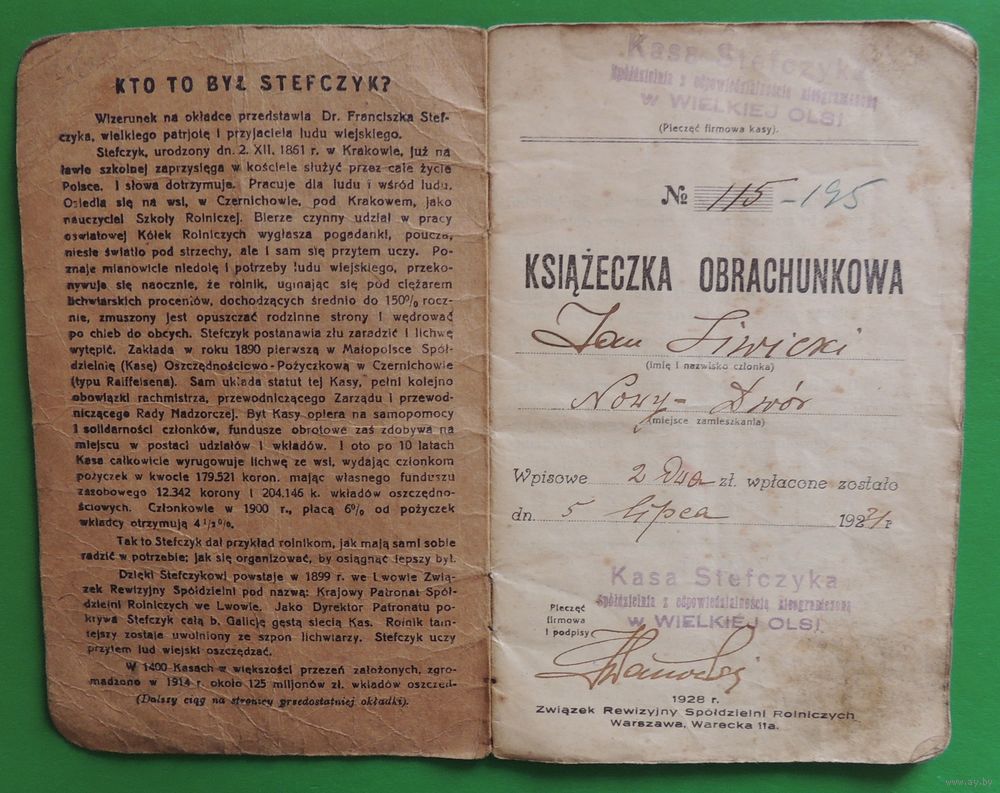 KTO TO BYŁ STEFCZYK?
Wizerunek na okładce przedstawia Dr. Franciszka Stef-
czyka, wielkiego patrjotę i przyjaciela ludu wiejskiego.
Stefczyk, urodzony dn. 2. XII. 1861 r. w Krakowie, już na
ławie szkolnej zaprzysięga w kościele służyć przez całe życie
Polsce. I słowa dotrzymuje. Pracuje dla ludu i wśród ludu.
Osiedla się na wsi, w Czernichowie, pod Krakowem, jako
nauczyciel Szkoły Rolniczej. Bierze czynny udział w pracy
oświatowej Kółek Rolniczych wygłasza pogadanki, poucza,
niesie światło pod strzechy, ale i sam się przytem uczy. Po-
znaje mianowicie niedolę i potrzeby ludu wiejskiego, przeko-
nywuje się naocznie, że rolnik, uginając się pod ciężarem
lichwiarskich procentów, dochodzących średnio do 150% rocz-
nie, zmuszony jest opuszczać rodzinne strony i wędrować
po chleb do obcych. Stefczyk postanawia złu zaradzić i lichwę
wytępić. Zakłada w roku 1890 pierwszą w Małopolsce Spół-
dzielnię (Kasę) Oszczędnościowo-Pożyczkową w Czernichowie
(typu Raiffeisena). Sam układa statut tej Kasy, pełni kolejno
obowiązki rachmistrza, przewodniczącego Zarządu i przewod-
niczącego Rady Nadzorczej. Byt Kasy opiera na samopomocy
i solidarności członków, fundusze obrotowe zaś zdobywa na
miejscu w postaci udziałów i wkładów. I oto po 10 latach
Kasa całkowicie wyrugowuje lichwę ze wsi, wydając członkom
pożyczek w kwocie 179.521 koron. mając własnego funduszu
zasobowego 12.342 korony i 204.146 k. wkładów oszczędno-
ściowych. Członkowie w 1900 r., płacą 6% od pożyczek
wkładcy otrzymują 4 1/2%.
Tak to Stefczyk dał przykład rolnikom, jak mają sami sobie
radzić w potrzebie; jak się organizować, by osiągnąć lepszy byt.
Dzięki Stefczykowi powstaje w 1899 r. we Lwowie Zwią-
zek Rewizyjny Spółdzielni pod nazwą: Krajowy Patronat Spół-
dzielni Rolniczych we Lwowie. Jako Dyrektor Patronatu po-
krywa Stefczyk całą b. Galicję gęstą siecią Kas. Rolnik tam-
tejszy zostaje uwolniony ze szpon lichwiarzy. Stefczyk uczy
przytem lud wiejski oszczędzać.
W 1400 Kasach w większości przezeń założonych, zgro-
madzono w 1914 r. około 125 miljonów zł. wkładów oszczęd-
(Dalszy ciąg na stronicy przedostatniej okładki).
Kasa Stefczyka
Spółdzielnia z odpowiedzialnością nieograniczoną
w WIELKIEJ OLSI
(Pieczęć firmowa kasy).
№ 115 - 195
KSIĄŻECZKA OBRACHUNKOWA
Jan Siwicki
(imię i nazwisko członka)
Nowy-Dwór
(miejsce zamieszkania)
Wpisowe 2 dwa zł. wpłacone zostało
dn. 5 lipca
Kasa Stefczyka
Spółdzielnia z odpowiedzialnością nieograniczoną
w WIELKIEJ OLSI
Pieczęć
firmowa
i podpisy
1928 r.
Związek Rewizyjny Spółdzielni Rolniczych
Warszawa, Warecka 11a.
www.ay.by